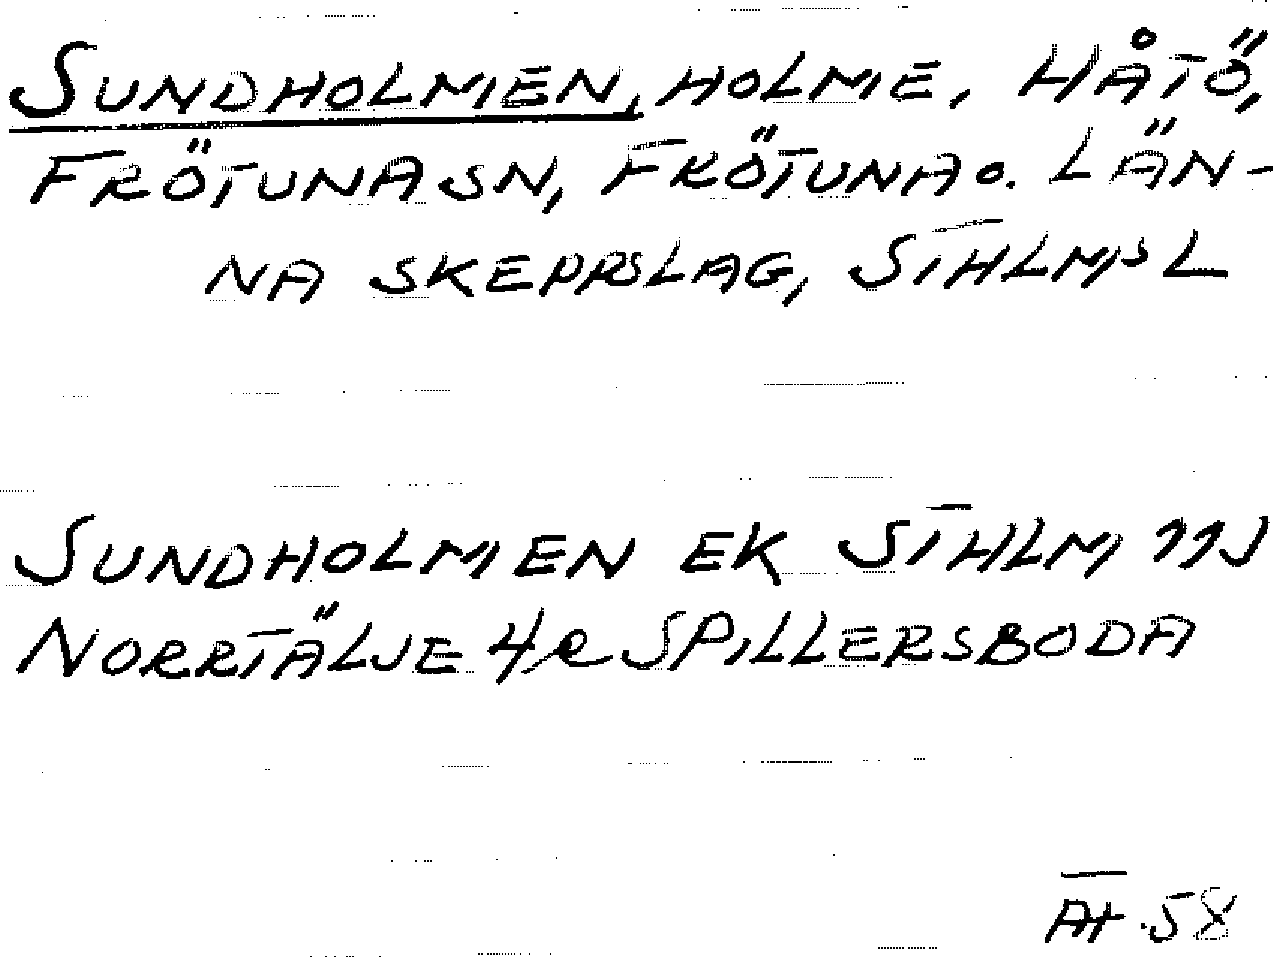 SUNDHOLMEN, HOLME, HÅTÖ,
FRÖTUNA SN, FRÖTUNA O. LÄN-
NA SKEPPSLAG, STHLMS L
SUNDHOLMEN EK STHLM 11J
NORRTÄLJE 4R SPILLERSBODA
AT. 58